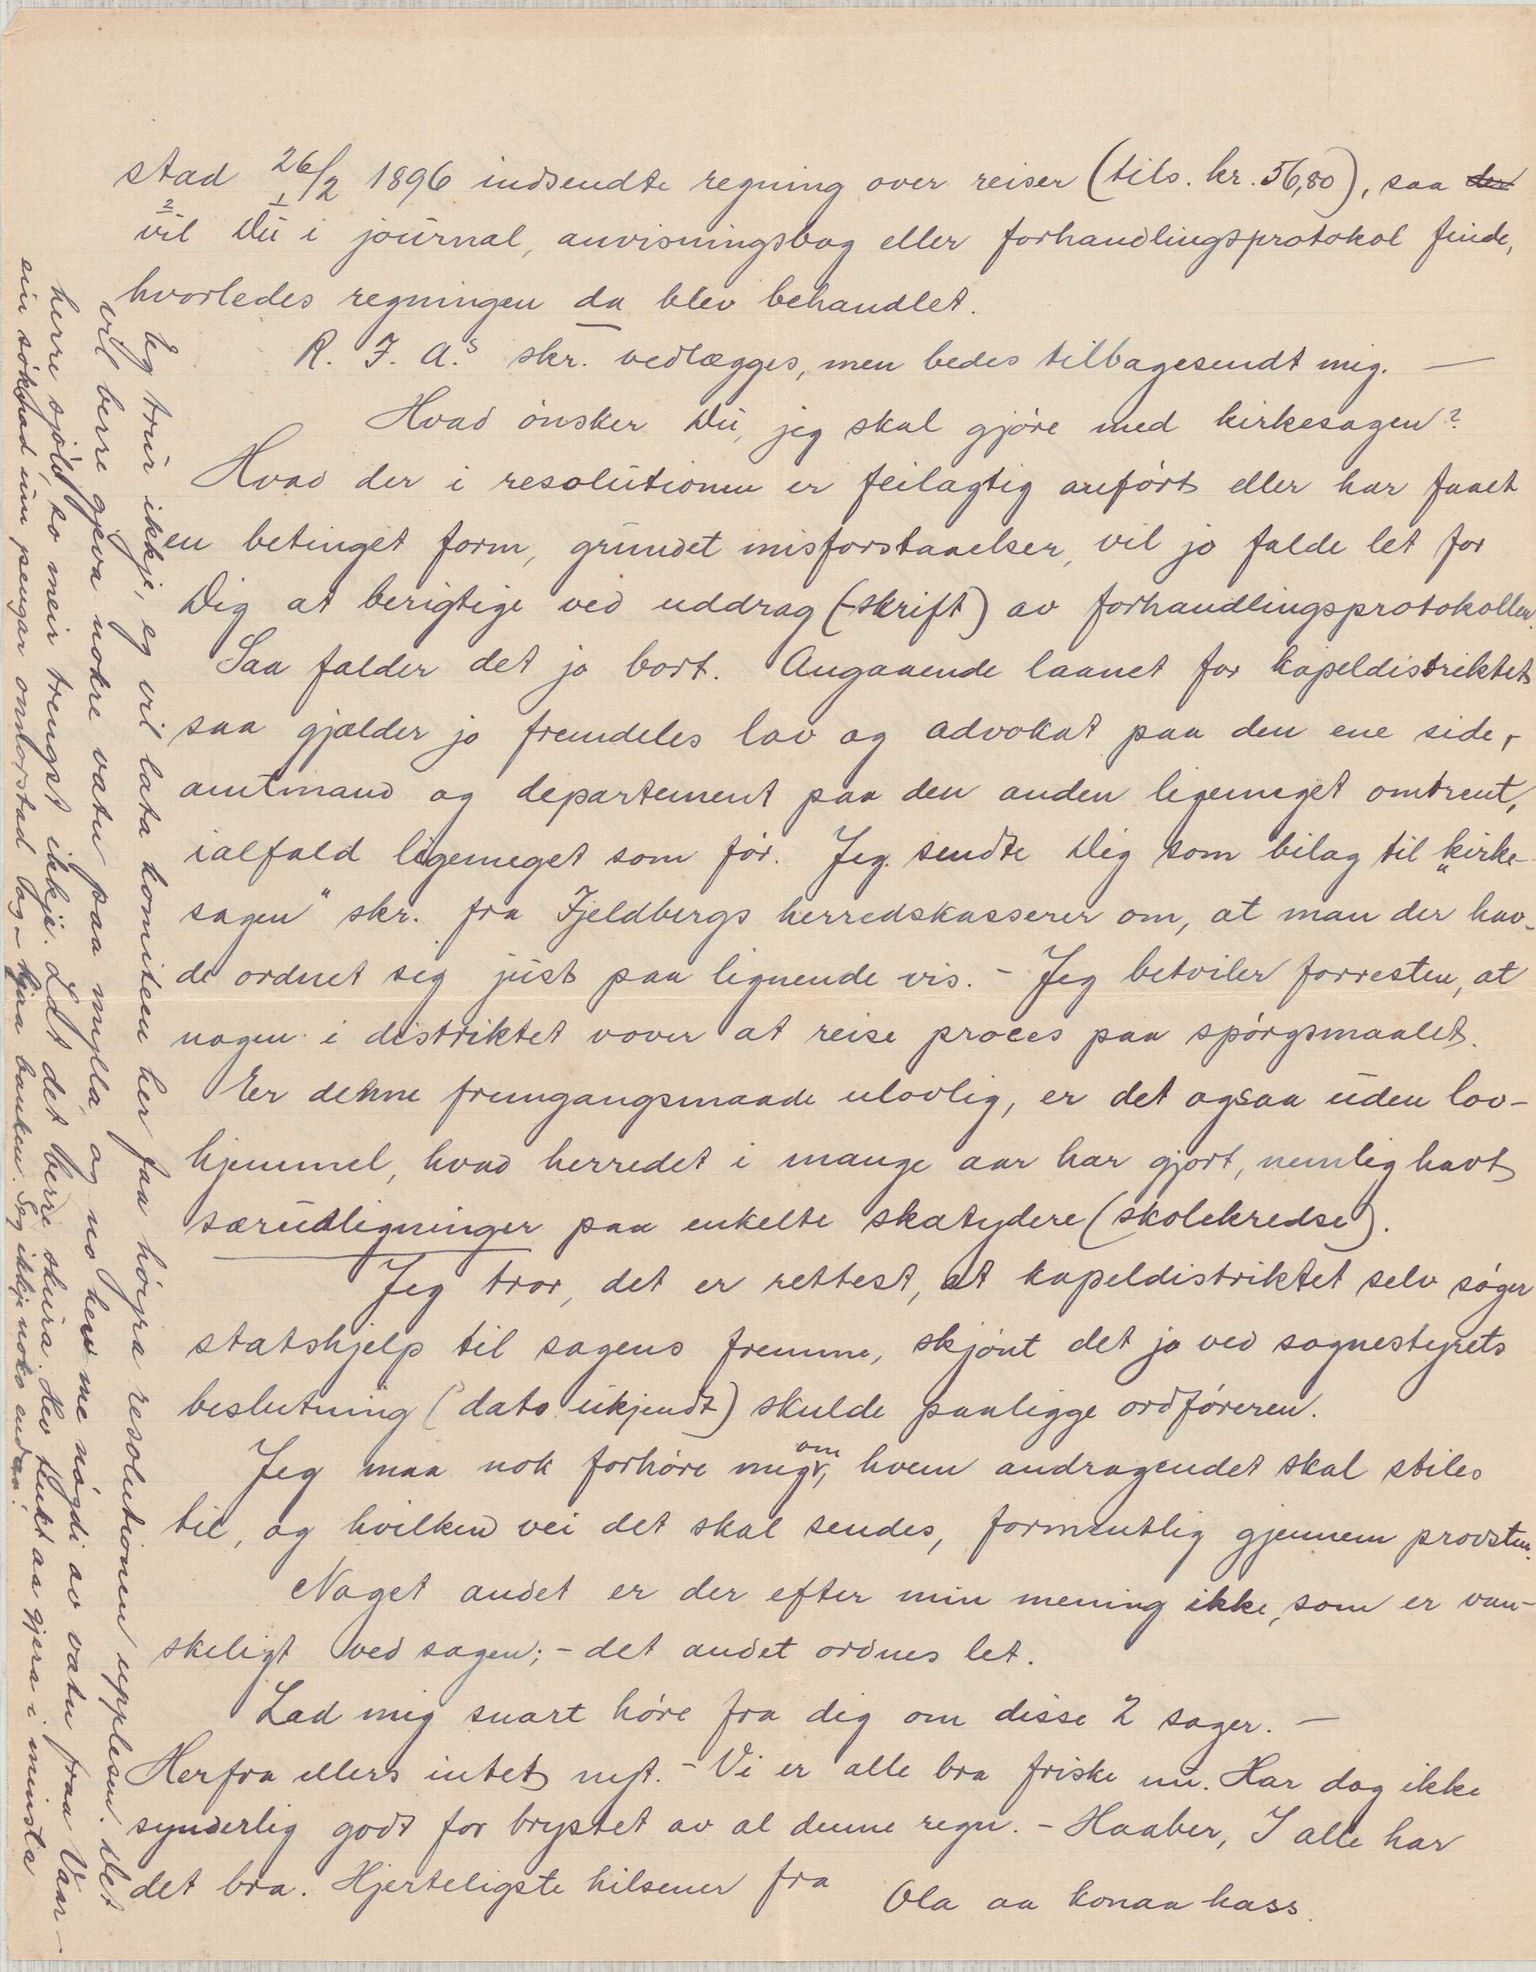 stad 26/2 1896 indsendte regning over reiser (tils. kr. 56,80), saa der
vil Du i journal, anvisningsbog eller forhandlingsprotokol finde,
hvorledes regningen da blev behandlet.
R. F. A.s skr. vedlægges, men bedes tilbagesendt mig. —
Hvad ønsker Du, jeg skal gjøre med kirkesagen?
Hvad der i resolutionen er feilagtig anført eller har faaet
en betinget form, grundet misforstaaelser, vil jo falde let for
Dig at berigtige ved uddrag (-skrift) av forhandlingsprotokollen.
Saa falder det jo bort. Angaaende laanet for kapeldistriktet
saa gjælder jo fremdeles lov og advokat paa den ene side,
amtmand og departement paa den anden ligemeget omtrent,
ialfald ligemeget som før. Jeg sendte Dig som bilag til „kirke-
sagen“ skr. fra Fjeldbergs herredskasserer om, at man der hav-
de ordnet seg just paa lignende vis. - Jeg betviler forresten, at
nogen i distriktet vover at reise proces paa spørgsmaalet.
Er denne fremgangsmaade ulovlig, er det ogsaa uden lov-
hjemmel, hvad herredet i mange aar har gjort, nemlig havt
særudligninger paa enkelte skatydere (skolekredse).
Jeg tror, det er rettest, at kapeldistriktet selv søger
statshjelp til sagens fremme, skjønt det jo ved sognestyrets
beslutning (dato ukjendt) skulde paaligge ordføreren.
Jeg maa nok forhøre mig om, hvem andragendet skal stiles
til, og hvilken vei det skal sendes, formentlig gjennem provsten.
Noget andet er der efter min mening ikke, som er van-
skeligt ved sagen; - det andet ordnes let.
Lad mig snart høre fra dig om disse 2 sager. —
Herfra ellers intet nyt. - Vi er alle bra friske nu. Har dog ikke
synderlig godt for brystet av al denne regn. - Haaber, I alle har
det bra. Hjerteligste hilsener fra
Ola aa konaa hass.
Eg trur ikkje, eg vil lata komiteen her faa høyra resolutionen upplesen. Det
vil berre gjeva nokre vatn paa mylla, og no hev me nøgdi av vatn fraa Vaar-
herre sjølv, so meir trengst ikkje. Lat det berre skura. Hev tenkt aa gjera i minsta
ein søknad um pengar onnorstad og - hjaa banken. Seg ikkje noko endaa!